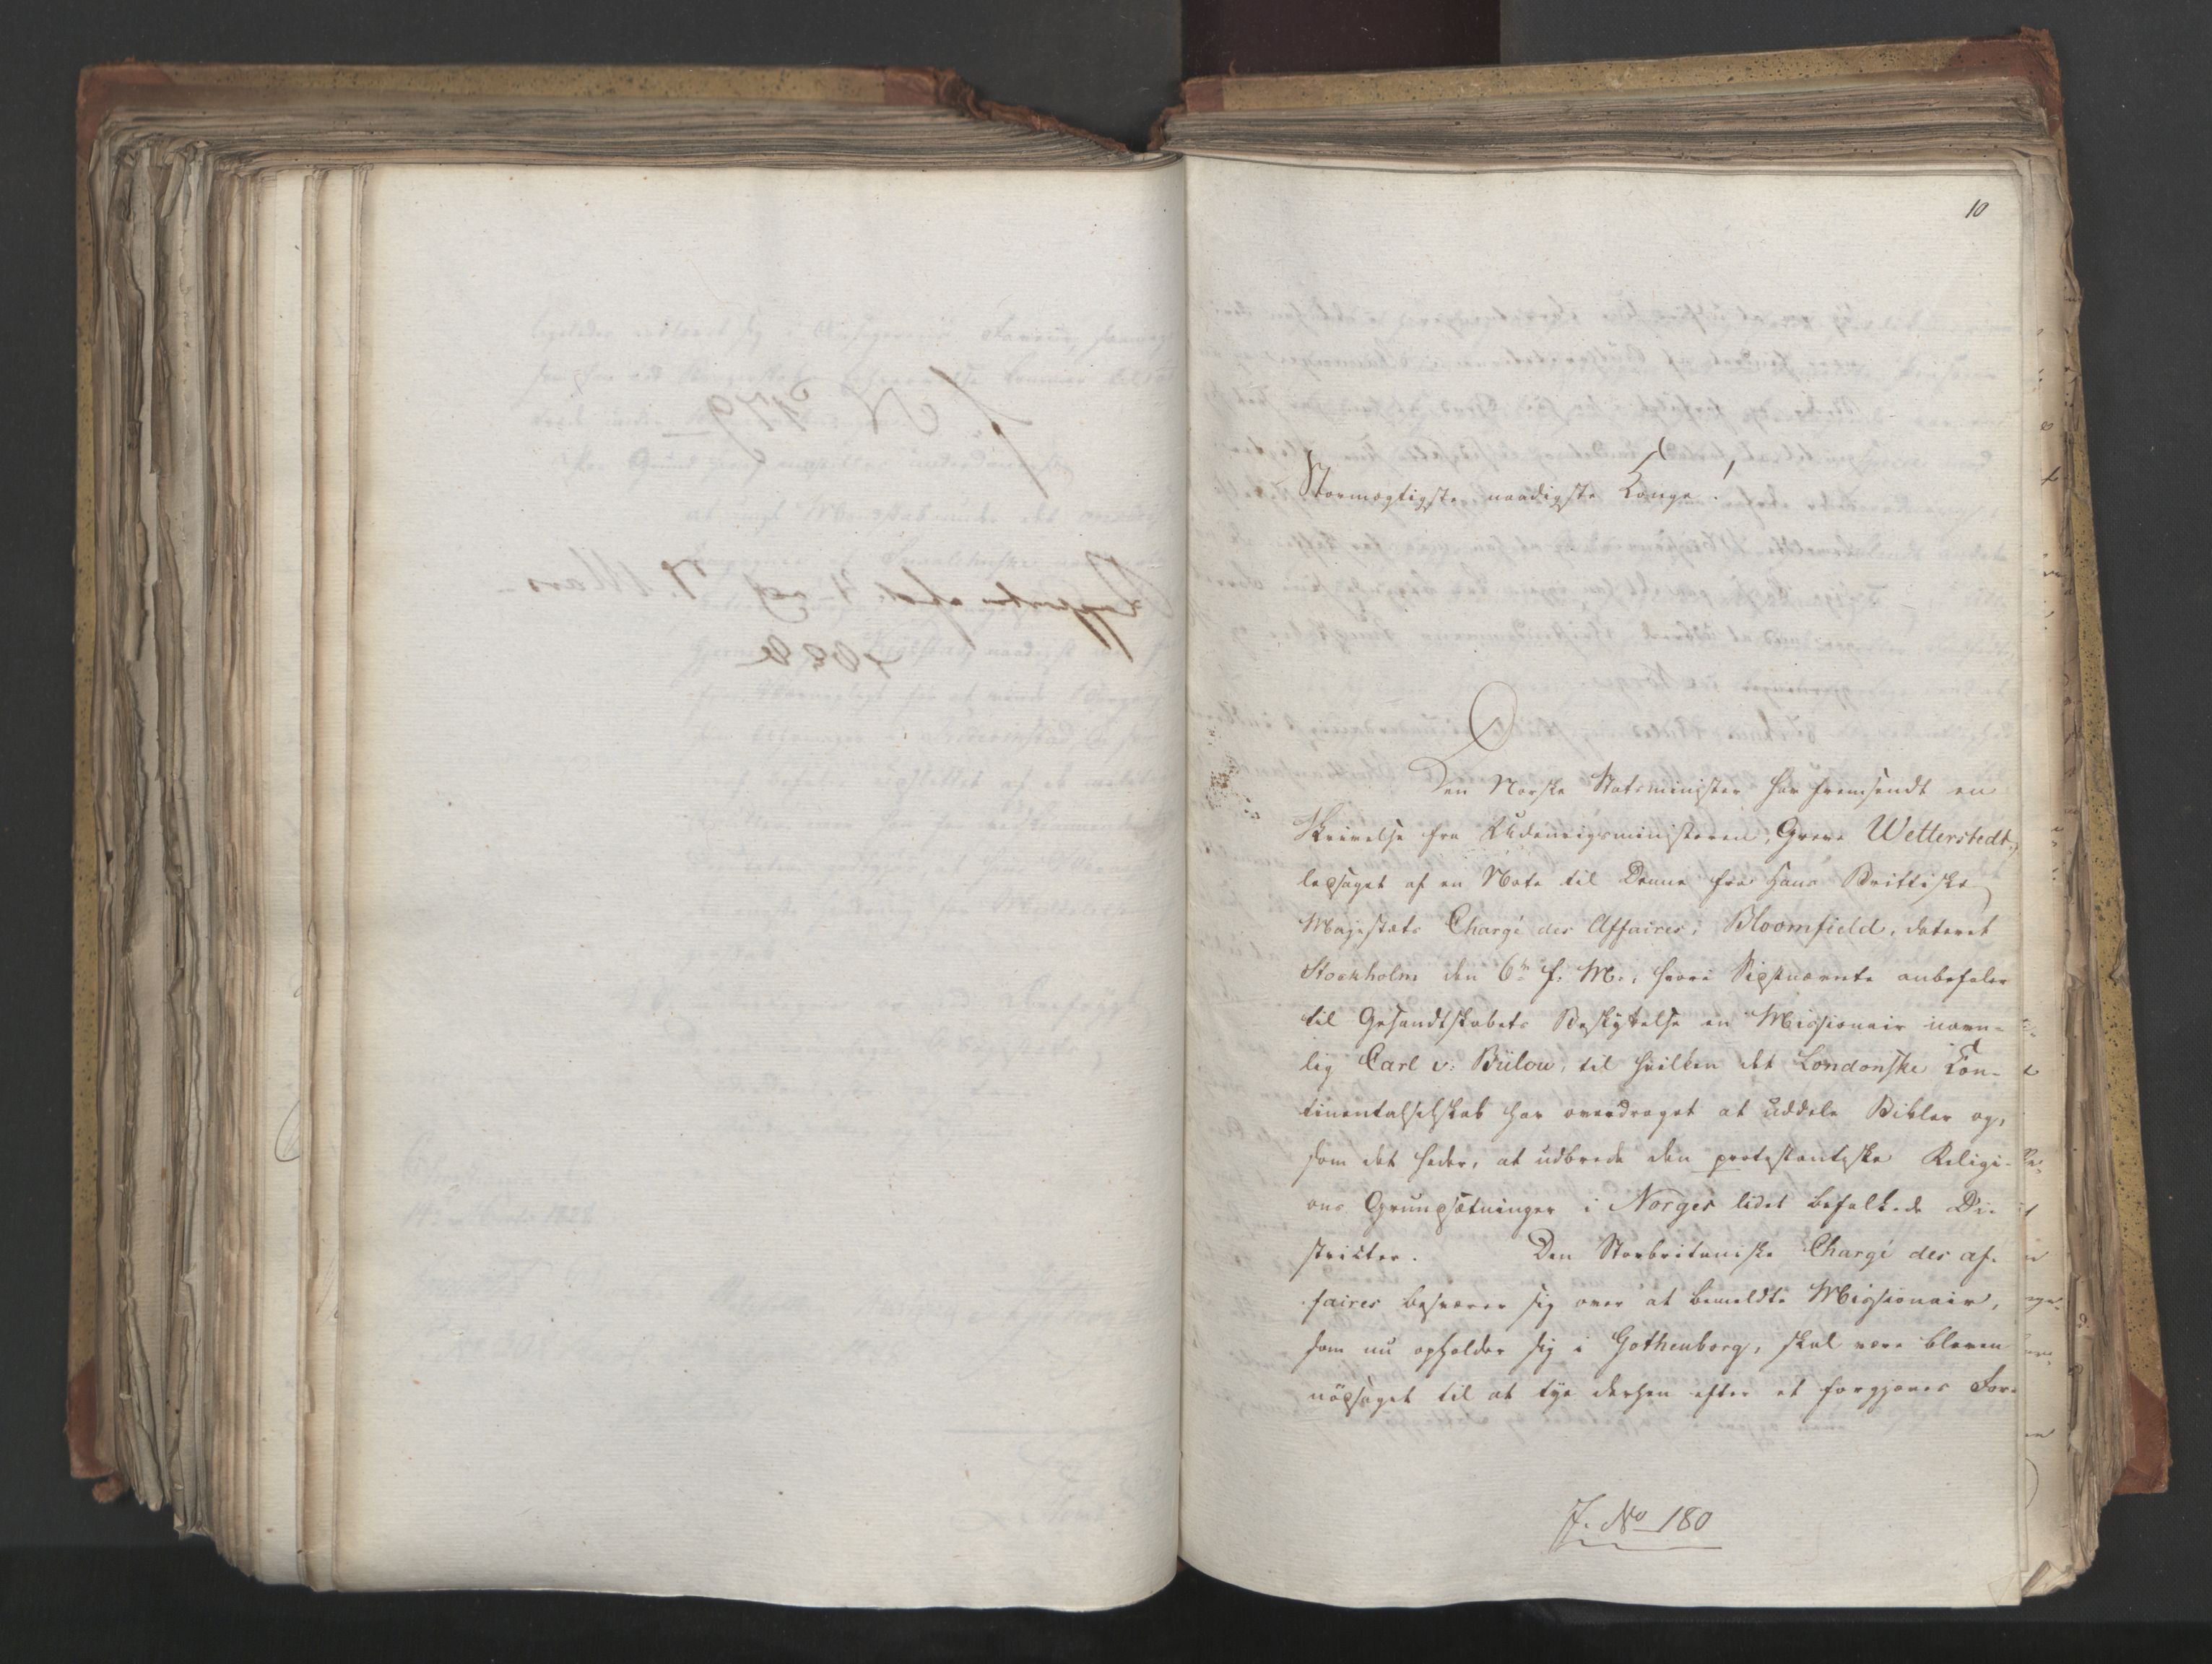 10
Stormægtigste naadigste Konge!
Den Norske Statsminister har fremsendt en
Skrivelse fra Udenrigsministeren, Greve Wetterstedt,
ledsaget af en Note til Denne fra Hans Brittiske
Majestæts Chargé des Affaires, Bloomfield, dateret
Stockholm den 6te f. M., hvori Sidstnævnte anbefaler
til Gesandtskabets Beskyttelse en Missionair navn-
lig Carl v. Bülow, til hvilken det Londonske Con-
tinentalselskab har overdraget at uddele Bibler og,
som det heder, at udbrede den protestantiske Religi-
ons Grundsætninger i Norges lidet befolkede Di-
stricter. Den Storbritaniske Chargé des af-
faires besværer sig over at bemeldte Missionair,
som nu opholder sig i Gothenborg, skal være bleven
nødsaget til at tye derhen efter et forgjæves For-
J. No 180